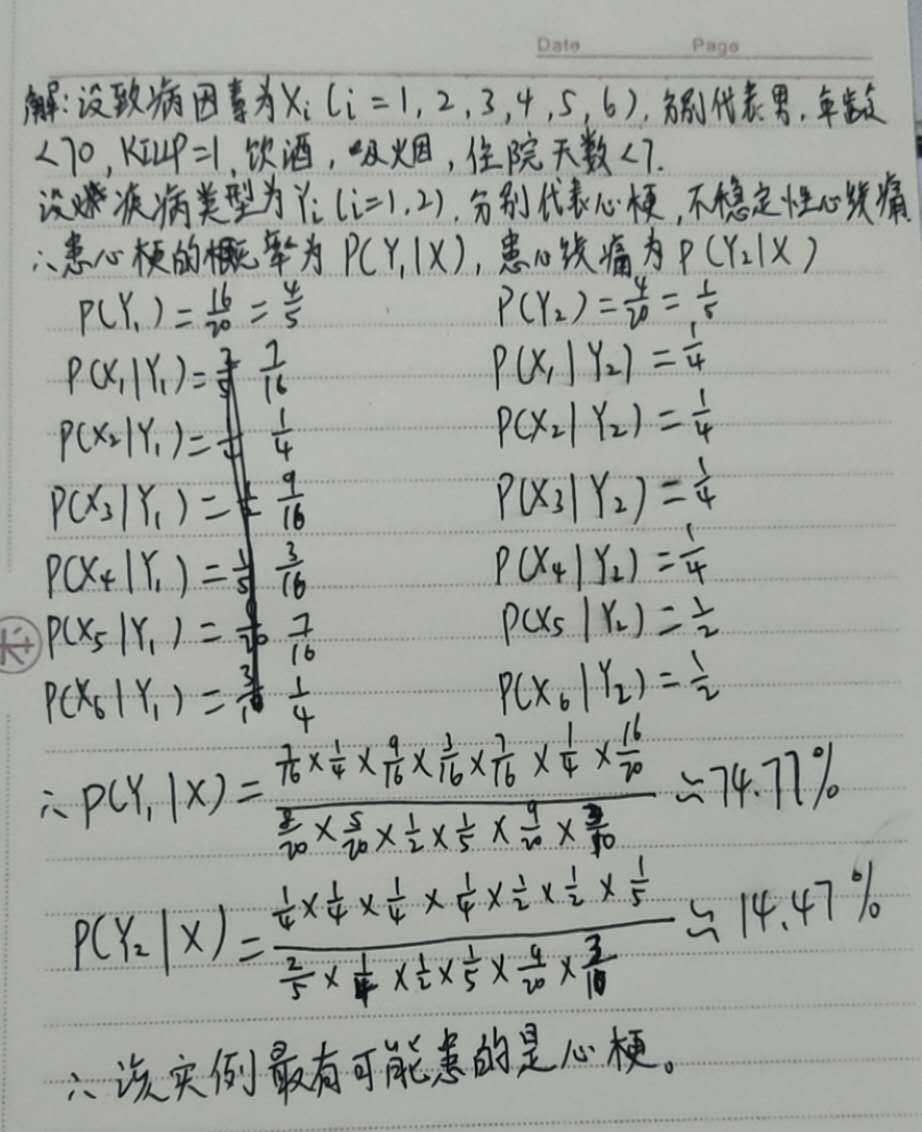 Date Page
解:设致病因素为Xi(i=1,2,3,4,5,6),分别代表男,年龄
<70,KILLP=1,饮酒,吸烟,住院天数<7.
设疾病类型为Yi(i=1,2).分别代表心梗,不稳定性心绞痛
∴患心梗的概率为P(Y₁|X),患心绞痛为P(Y₂|X)
P(Y₁)=16/20=4/5 P(Y₂)=4/20=1/5
P(X₁|Y₁)= 7/16 P(X₁|Y₂)=1/4
P(X₂|Y₁)= 1/4 P(X₂|Y₂)=1/4
P(X₃|Y₁)= 9/16 P(X₃|Y₂)=1/4
P(X₄|Y₁)= 3/16 P(X₄|Y₂)=1/4
P(X₅|Y₁)= 7/16 P(X₅|Y₂)=1/2
P(X₆|Y₁)= 1/4 P(X₆|Y₂)=1/2
∴P(Y₁|X)= (7/16×1/4×9/16×3/16×7/16×1/4×16/20)/(8/20×5/20×1/2×1/5×9/20×3/10) ≈74.77%
P(Y₂|X)= (1/4×1/4×1/4×1/4×1/2×1/2×1/5)/(2/5×1/4×1/2×1/5×9/20×3/10) ≈14.47%
∴该实例最有可能患的是心梗。